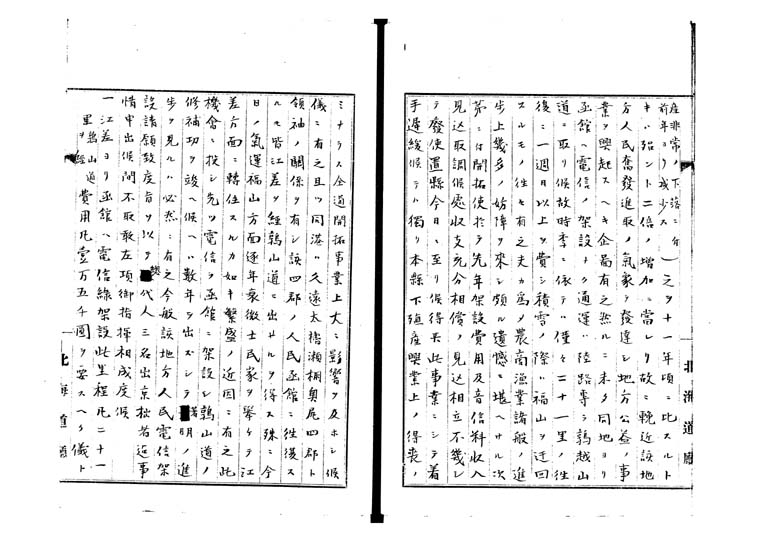 産非常ノ下落ニ付
前年ヨリ減少ス
之ヲ十一年頃ニ比スルト
キハ殆ント二倍ノ増加ニ當レリ故ニ輓近該地
方人民奮發進取ノ氣象ヲ發達シ地方公益ノ事
業ヲ興起スヘキ企圖有之然ルニ未タ同地ヨリ
函館ヘ電信ノ架設ナク通運ハ陸路專ラ鶉越山
道ニ取リ候故時季ニ依テハ僅々二十一里ノ往
復ニ一週日以上ヲ費シ積雪ノ際ハ福山ヲ迂回
スルモノ往々有之夫カ為メ農商漁業諸般ノ進
歩上幾多ノ妨障ヲ來シ頗ル遺憾ニ堪ヘサル次
第ニ付開拓使於テ先年架設費用及音信料收入
見込取調候處收支充分相償フ見込相立不幾シ
テ廢使置縣今日ニ至リ候得共此事業ニシテ着
手遲緩候テハ獨リ本縣下殖産興業上ノ得喪ノ
ミナラス全道開拓事業上丈ニ影響ヲ及ホシ候
儀ニ有之且ツ同港ハ久遠太櫓瀬棚奥尻四郡ト
領袖ノ關係ヲ有シ該四郡ノ人民函館ニ往復ス
ルモ皆江差ヲ經鶉山道ニ出サルヲ得ス殊ニ今
日ノ氣運福山方面逐年衰微士民家ヲ擧ケテ江
差方面ニ轉住スルカ如キ繁盛ノ近因ニ有之此
機會ニ投シ先ツ電信ヲ函館ニ架設シ鶉山道ノ
修補功ヲ竣ヘ候ヘハ數年ヲ出スシテ著明ノ進
歩ヲ見ルハ必然ニ有之今般該地方人民電信架
設請願致度旨ヲ以テ総代人三名出京松若迫事
情申出候間不取敢左項御指揮相成度候
一江差ヨリ函館ヘ電信線架設此里程凡二十一
里鶉山道ヲ經費用凡壹万五千圓ヲ要スヘク儀ト
北海道廳
北海道廳